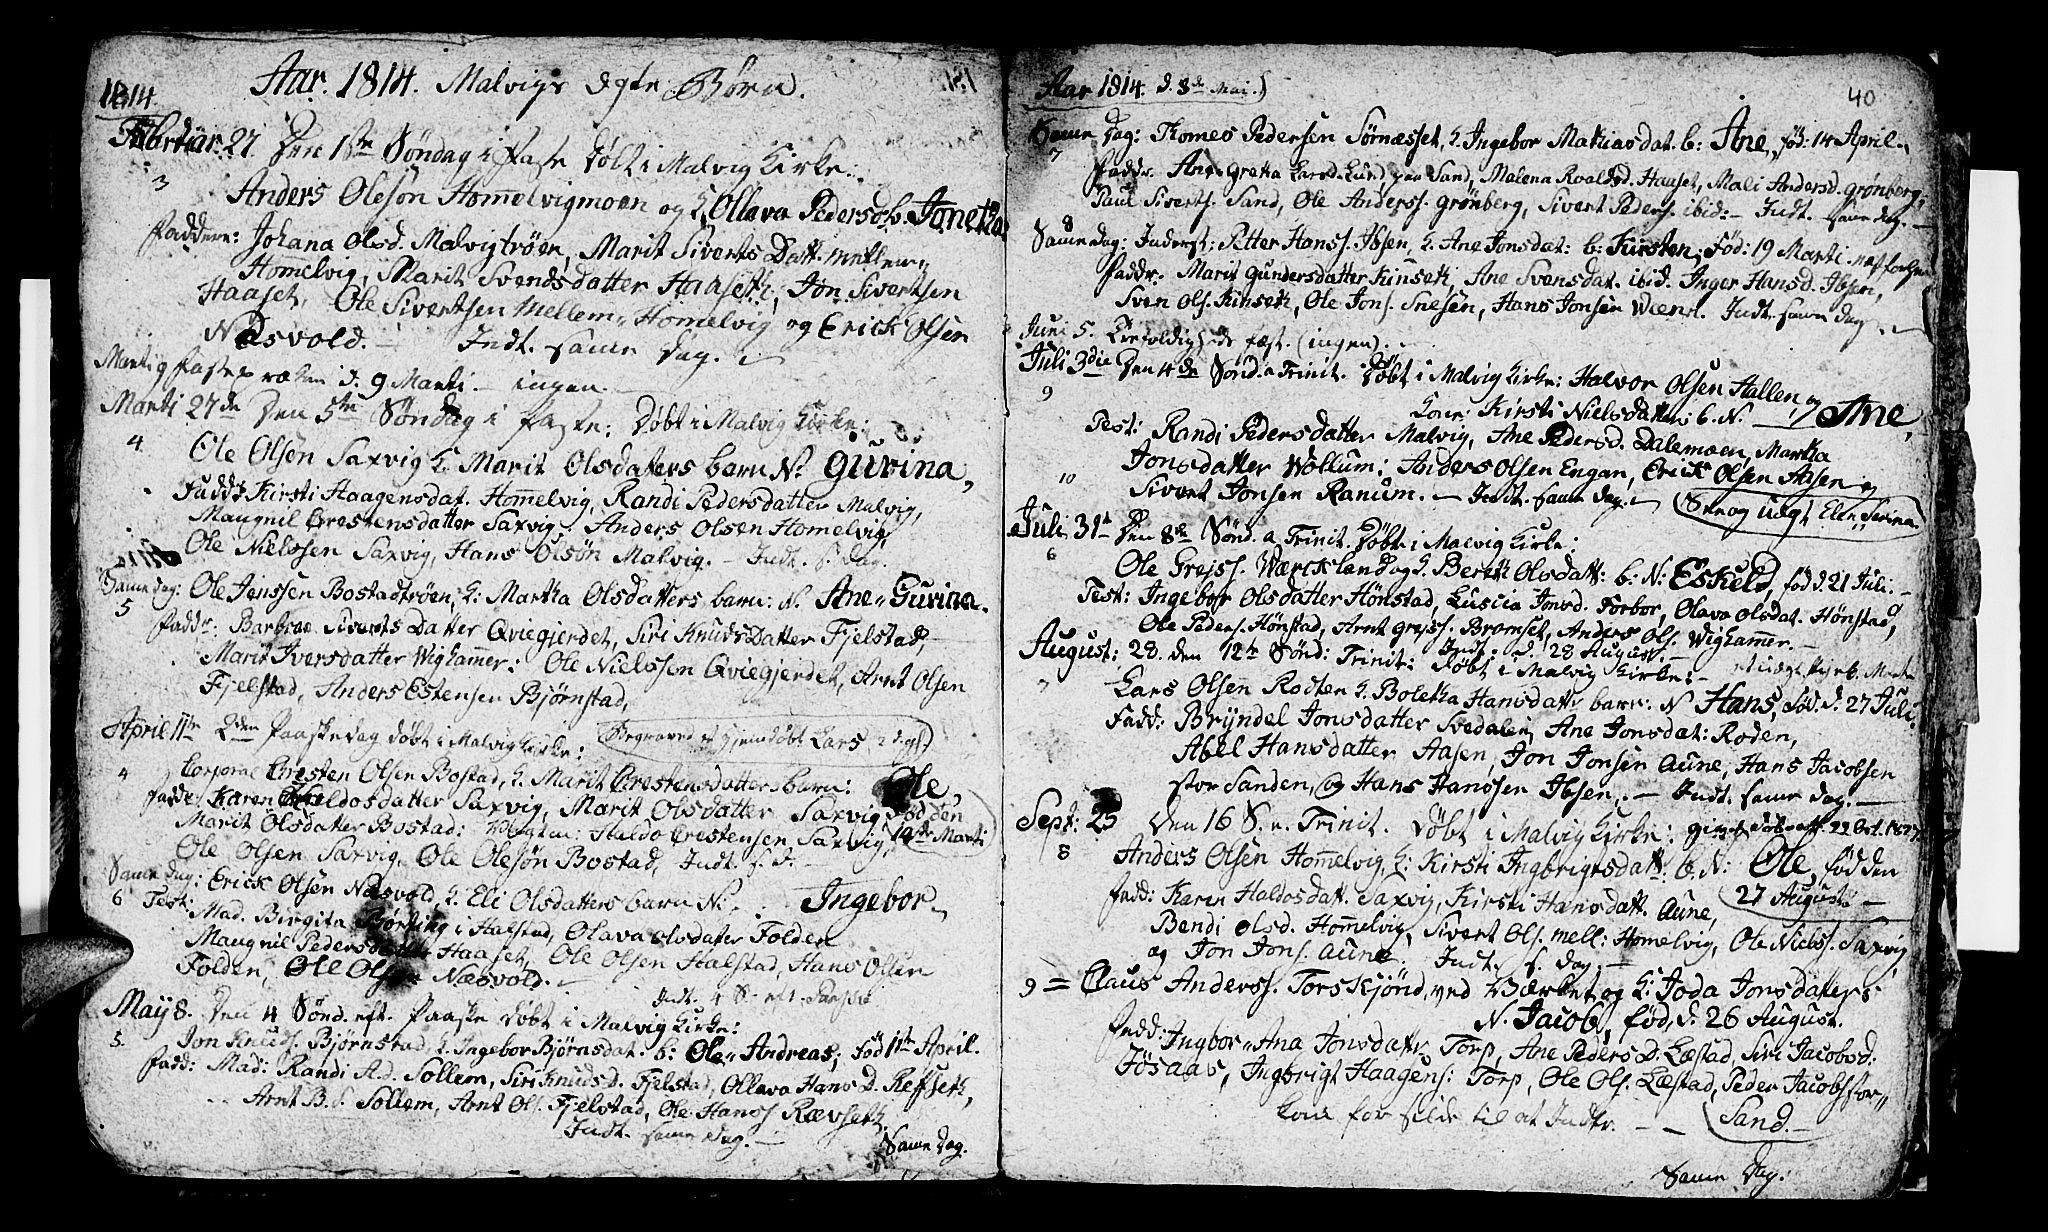 1814.
Aar. 1814. Malvigs Ægte Børn.
Februar. 27. Den 1ste Søndag i faste Døbt i Malvig Kirke:
3 Anders Olesøn Hom̄elvigmoen og K. Ollava Pedersd. b. Jonetha
Faddere: Johana Olsd. Malvigtrøen, Marit Siverts Datt. mellem
Homelvig, Marit Svendsdatter Haaseth, Jon Sivertsen
Haaset, Ole Sivertsen Mellem-Homelvig og Erick Olsen
Næsvold. — Indt. samme Dag.
Marti 9 Fasteprækken d. 9 Marti — ingen.
Marti 27de Den 5te Søndag i faste: Døbt i Malvig Kirke:
4 Ole Olsøn Saxvig K. Marit Olsdatters barn N. Gurina,
Fadd: Kirsti Haagensdat. Hom̄elvig, Randi Pedersdatter Malvig,
Maugnil Crestensdatter Saxvig. Anders Olsen Homelvig,
Ole Nielssen Saxvig, Hans Olsøn Malvig. — Indt. s. Dag.
Samme Dag: Ole Jenssen Bostadtrøen, K: Martha Olsdatters barn: N. Ane-Gurina.
5 Faddr: Barbroe Siverts Datter Qviegjerdet, Siri Knuds Datter Fjelstad,
Marit Iversdatter Wighammer: Ole Nielssen Qviegjerdet, Arnt Olsen
Fjelstad, Anders Estensen Bjørnstad,
April 11te 2den Paaskedag døbt i Malvig Kirke: Begraved et hjemdøbt Lars
4 Corporal Cresten Olsen Bostad, K. Marit Crestensdatters barn: Ole,
Fadd: Karen Haldosdatter Saxvig, Marit Olsdatter Saxvig, fød den
Marit Olsdatter Bostad: Haldo Crestensen Saxvig, 19te Marti
Ole Olsen Saxvig, Ole Olesøn Bostad, Indt. s. D. —
Samme Dag: Erick Olsen Næsvold, K: Eli Olsdatters barn N: Ingebor
6 Test: Mad. Birgita i Halstad, Olava Olsdater Folden
Maugnil Pedersdatter Haaset, Ole Olsen Halstad, Hans Olsen
Folden, Ole Olsen Næsvold. —
Indt. 4 S. eft. Paaske
May 8. Den 4 Sønd. eft. Paaske Døbt i Malvig Kirke:
5. Jon Knuds. Bjørnstad, K. Ingebor Bjørnsdat. b: Ole-Andreas, fød 11te April.
Fadd: Mad: Randi A.d. Sollem, Siri Knudsd. Fjelstad, Ollava Hans D. Refseth,
Arnt B.s. Sollem, Arnt Ols. Fjelstad, Ole Hanss. Rævseth.
Indt. samme Dag. —
Samme Dag.
40
Aar 1814. d. 8de Mai.)
Samme Dag: Thomes Pedersen Sørnæsset, K. Ingebor Mathiasdat. b: Ane, fød: 14 April.
7 Faddr. Ane Gretha Larsd. Lund paa Sand, Malena Roaldsd. Haaset, Mali Andersd. Grønberg,
Paul Siverts. Sand, Ole Anderss. Grønberg, Sivert Peders. ibid: — Indt. samme dag.
8
Samme Dag: Inderst: Petter Hanss. Ibsen, K. Ane Jonsdat: b: Kirsten, fød: 19 Marti
Faddr. Marit Gundersdatter Kinseth, Ane Svensdat. ibid. Inger Hansd. Ibsen,
Sven Ols. Kinseth, Ole Jons. Snesen, Hans Jonsen Wiend. Indt. samme Dag.
Juni 5. Trefoldigheds fæst. (ingen). —
Juli 3die Den 4de Sønd. a Trinit. Døbt i Malvig Kirke: Halvor Olsen Hallen, og
9 Kone: Kirsti Nielsdatters b. N. Ane,
Test: Randi Pedersdatter Malvig, Ane Pedersd. Dalemoen, Martha
Jonsdatter Wollum: Anders Olsen Engan, Erick Olsen Aasen og
10 Sivert Jonsen Ranum. — Indt. samme Dag. — Elen Serina.
Juli 31te Den 8de Sønd. a Trinit. Døbt i Malvig Kirke:
6 Ole Grejss. Wærcksland og K. Berith Olsdatt: b: N: Eskeld, fød d. 21 Juli.
Test: Ingebor Olsdatter Hønstad, Luscia Jonsd. Forbor, Olava Olsdat. Hønstad,
Ole Peders. Hønstad, Arnt Grejss. Bromset, Anders Ols. Wighammer. —
Indt. d. 28 August.
August: 28. den 12te Sønd: Trinit: Døbt i Malvig Kirke: —
7 Lars Olsen Rodten K. Boletha Hansdattr barn: N Hans, fød. d. 27 Juli.
Fadd: Bryndel Jonsdatter Svedalen, Ane Jonsdat: Roden,
Abel Hansdatter Aasen, Jon Jonsen Aune, Hans Jacobsen
stor Sanden, og Hans Hanssen Ibsen, — Indt. samme Dag. —
Sept: 25 Den 16 S. a. Trinit. Døbt i Malvig Kirke: 22 Oct. 1827
8 Anders Olsen Hom̄elvig, K: Kirsti Ingbrigtsdatt. b. N: Ole, fød den
27 August: —
Fadd: Karen Haldosdatt. Saxvig, Kirsti Hansdatt. Aune,
Bendi Olsd. Hom̄elvig, Sivert Ols. mell: Homelvig, Ole Nielss. Saxvig,
og Jon Jons. Aune. Indt. s. Dag. —
9 = Claus Anderss. Torskjønd, ved Værket og K: Joda Jonsdaters
N. Jacob, fød, d. 26 August.
Fadd: Ingbor-Ana Jonsdatr Torp, Ane Peders D. Læstad, Siri Jacobsd.
Jøsaas, Ingbrigt Haagens: Torp, Ole Ols. Læstad, Peder Jacobs stor-
Sand. —
kom for silde til at Indtr. —
Samme Dag: